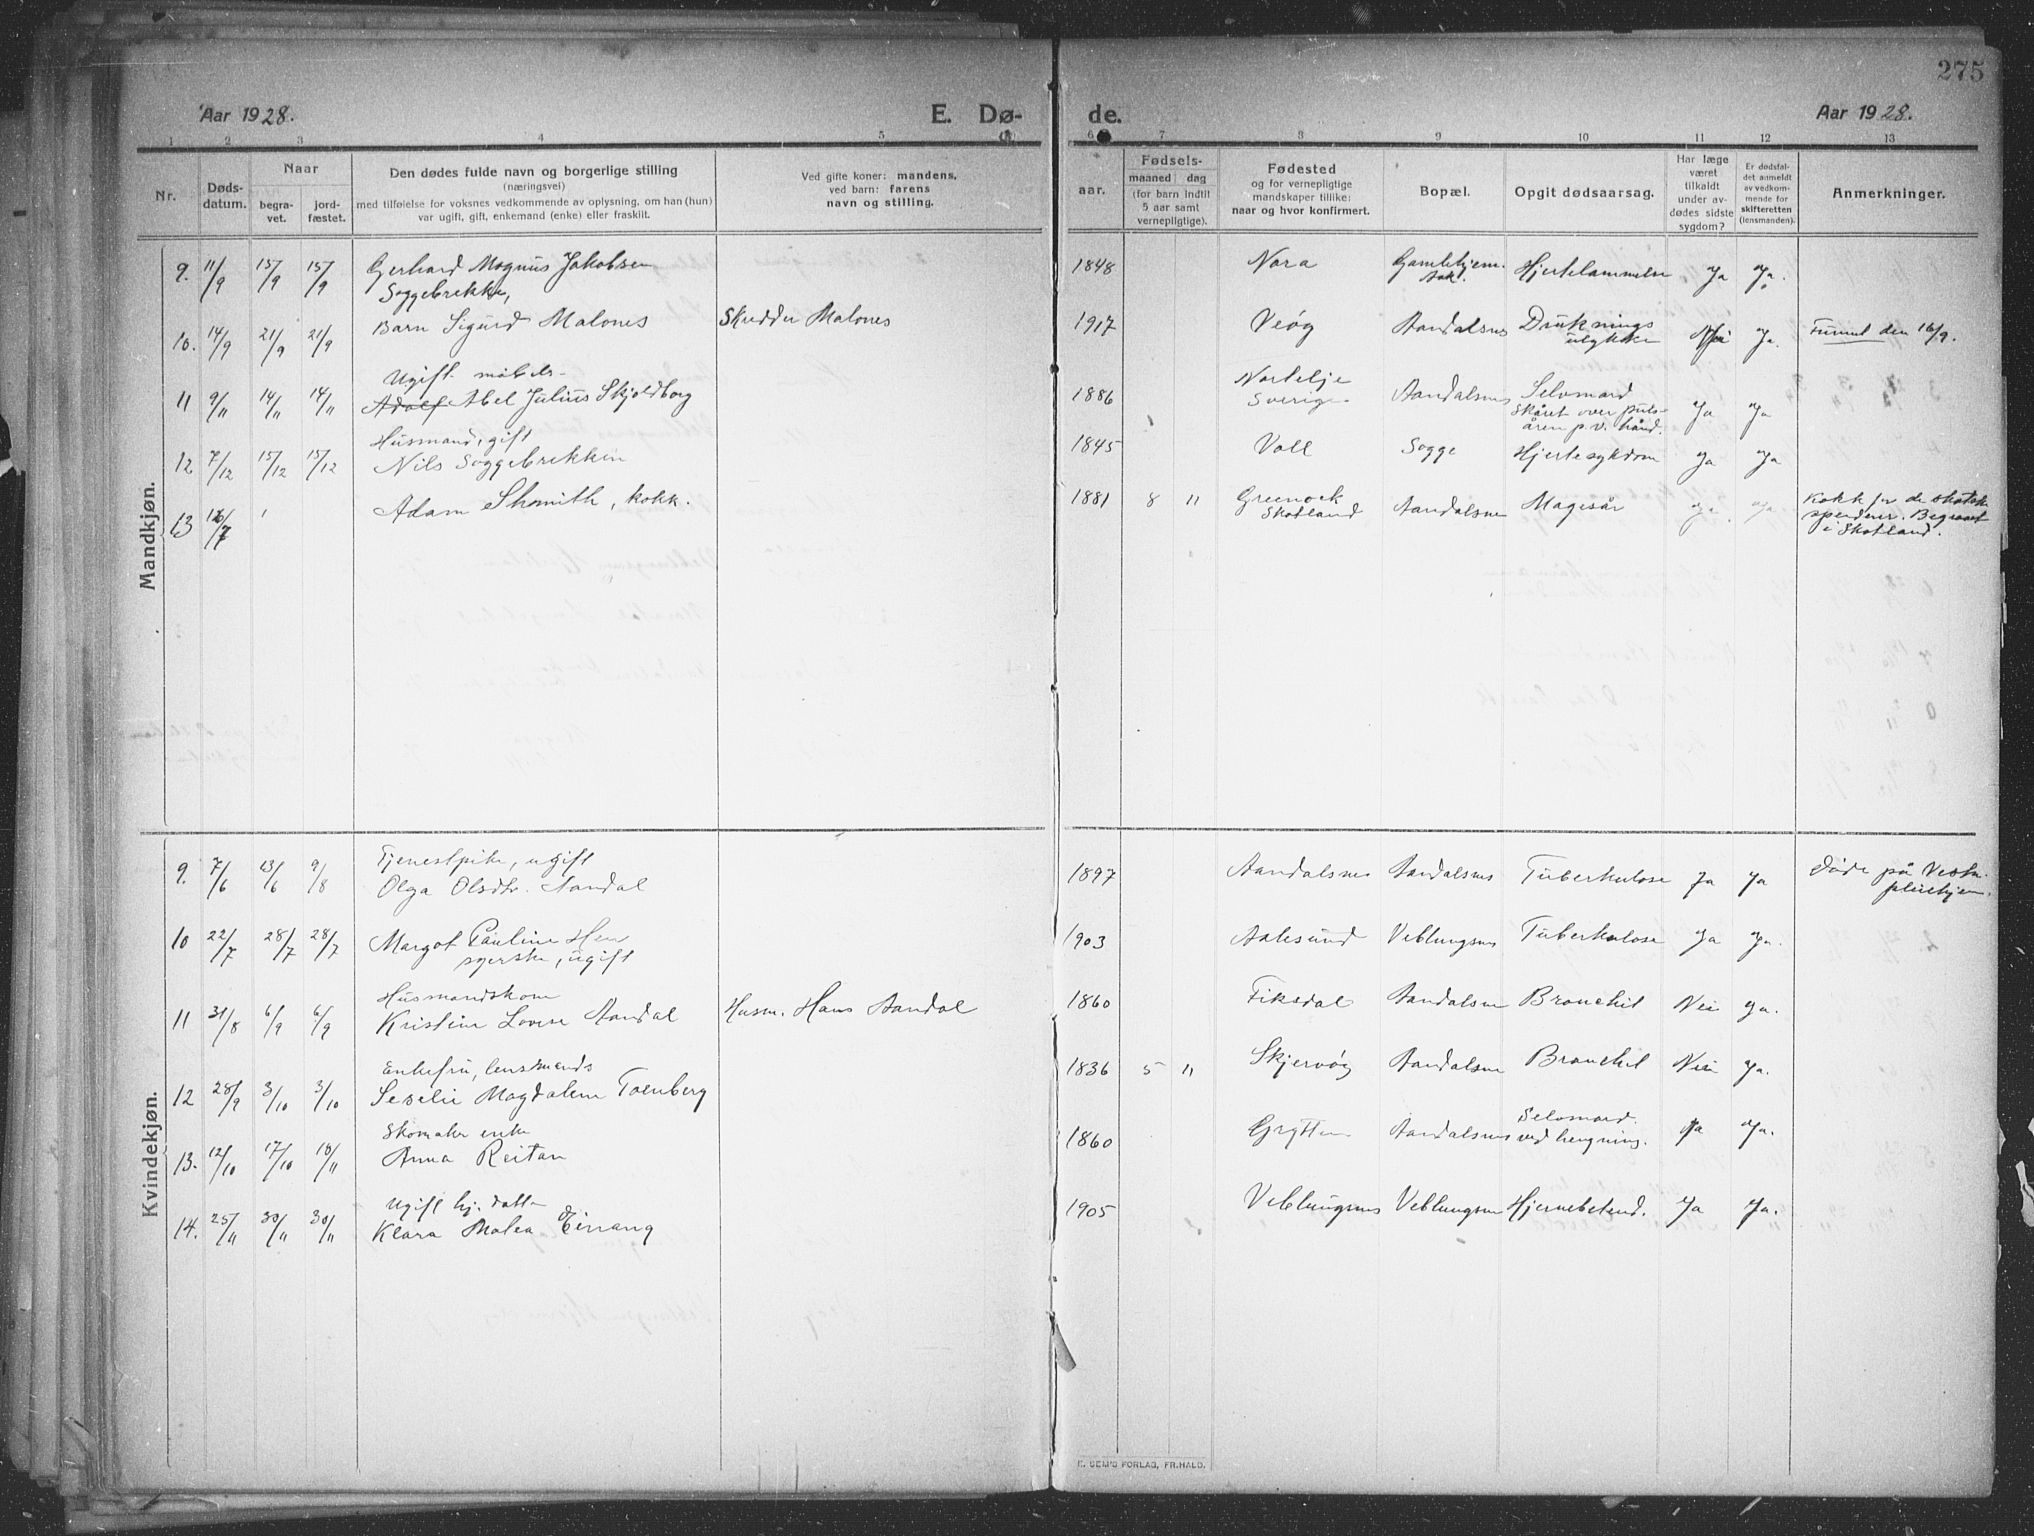 275
Aar 1928.
E. Dø-
de.
Aar 1928.
1 2 3 4 5 6 7 8 9 10 11 12 13
Nr.
Døds-
datum.
Naar
begra-
vet.
jord-
fæstet.
Den dødes fulde navn og borgerlige stilling
(næringsvei)
med tilføielse for voksnes vedkommende av oplysning, om han (hun)
var ugift, gift, enkemand (enke) eller fraskilt.
Ved gifte koner: mandens,
ved barn: farens
navn og stilling.
aar.
Fødsels-
maaned dag
(for barn indtil
5 aar samt
vernepligtige).
Fødested
og for vernepligtige
mandskaper tillike:
naar og hvor konfirmert.
Bopæl.
Opgit dødsaarsag.
Har læge
været
tilkaldt
under av-
dødes sidste
sygdom?
Er dødsfal-
det anmeldt
av vedkom-
mende for
skifteretten
(lensmanden).
Anmerkninger.
Mandkjøn.
9. 11/9 15/9 15/9 Gerhard Magnus Jakobsen
Soggebrekke, 1848 Nora Hjertelammelse Ja Ja.
10. 14/9 21/9 21/9 Barn Sigurd Malones Skredder Malones 1917 Veøy Aandalsnes Druknings
ulykke Nei Ja. Funnet den 16/9.
11 9/11 14/11 14/11 Ugift
Adolf Abel Julius Skjoldborg 1886 Nortelje
Sverige Aandalsnes Selvmord
Skåret over puls-
åren p.v. hånd. Ja Ja
12 7/12 15/12 15/12 Husmand, gift
Nils Soggebrekken 1845 Voll Sogge Hjertesykdom Ja Ja
13 Adam Shmith, kokk. 1881 8 11 Greenock
Skotland Aandalsnes Magesår Ja. Ja. Kokk for de skotske
Begravet
i Skotland.
Kvindekjøn.
9. 7/6 13/6 9/8 Tjenestpike, ugift
Olga Olsdtr. Aandal 1897 Aandalsnes Aandalsnes Tuberkulose Ja Ja Døde på Vestnes
pleiehjem.
10 22/7 28/7 28/7 Margot Pauline Hen
syerske, ugift 1903 Aalesund Veblungsnes Tuberkulose Ja Ja.
11 31/8 6/9 6/9 Husmandskone
Kristine Lovise Aandal Husm. Hans Aandal 1860 Fiksdal Aandalsnes Bronchit Nei Ja.
12 28/9 3/10 3/10 Enkefru, lensmands
Seselie Magdalene Toenberg 1836 5 11 Skjervøy Aandalsnes Bronchit Nei Ja.
13. 12/10 17/10 10/11 Skomaker enke
Anna Reitan 1860 Grytten Aandalsnes Selvmord
ved hengning. Ja Ja.
14. 25/11 30/11 30/11 Ugift hj. datter
Klara Malea Eirang 1905 Veblungsnes Veblungsnes Hjernebetend. Ja Ja.
E. SEM'S FORLAG, FR.HALD.